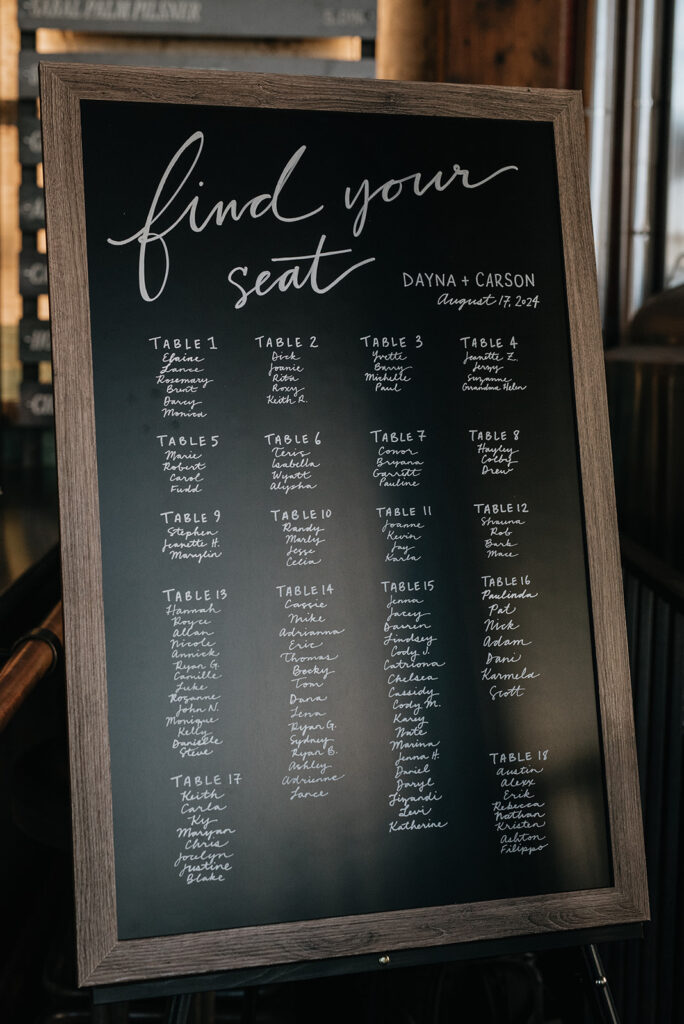 PALM PILSNER
find your
seat
DAYNA + CARSON
August 17, 2024
TABLE 1
Elaine
Lance
Rosemary
Brent
Darcy
Monica
TABLE 2
Dick
Joanie
Rita
Roxy
Keith R.
TABLE 3
Yvette
Barry
Michelle
Paul
TABLE 4
Jeanette Z.
Jerzy
Suzanne
Grandma Helen
TABLE 5
Marie
Robert
Carol
Fudd
TABLE 6
Teris
Isabella
Wyatt
Alysha
TABLE 7
Conor
Bryana
Garrett
Pauline
TABLE 8
Hayley
Colby
Drew
TABLE 9
Stephen
Jeanette H.
Marylin
TABLE 10
Randy
Marly
Jesse
Celia
TABLE 11
Joanne
Kevin
Jay
Karla
TABLE 12
Shauna
Rob
Barb
Mace
TABLE 13
Hannah
Royce
Allan
Nicole
Annick
Ryan G.
Camille
Luke
Roxanne
John N.
Monique
Kelly
Danielle
Steve
TABLE 14
Cassie
Mike
Adrianna
Eric
Thomas
Becky
Tom
Dana
Lena
Ryan G.
Sydney
Ryan B.
Ashley
Adrienne
Lance
TABLE 15
Jenna
Jacey
Darren
Lindsey
Cody J.
Catriona
Chelsea
Cassidy
Cody M.
Karey
Nate
Marina
Jenna H.
Daniel
Daryl
Lizandi
Levi
Katherine
TABLE 16
Paulinda
Pat
Nick
Adam
Dani
Karmela
Scott
TABLE 17
Keith
Carla
Ky
Maryan
Chris
Jocelyn
Justine
Blake
TABLE 18
Austin
Alexx
Erik
Rebecca
Nathan
Kristen
Ashton
Filippo